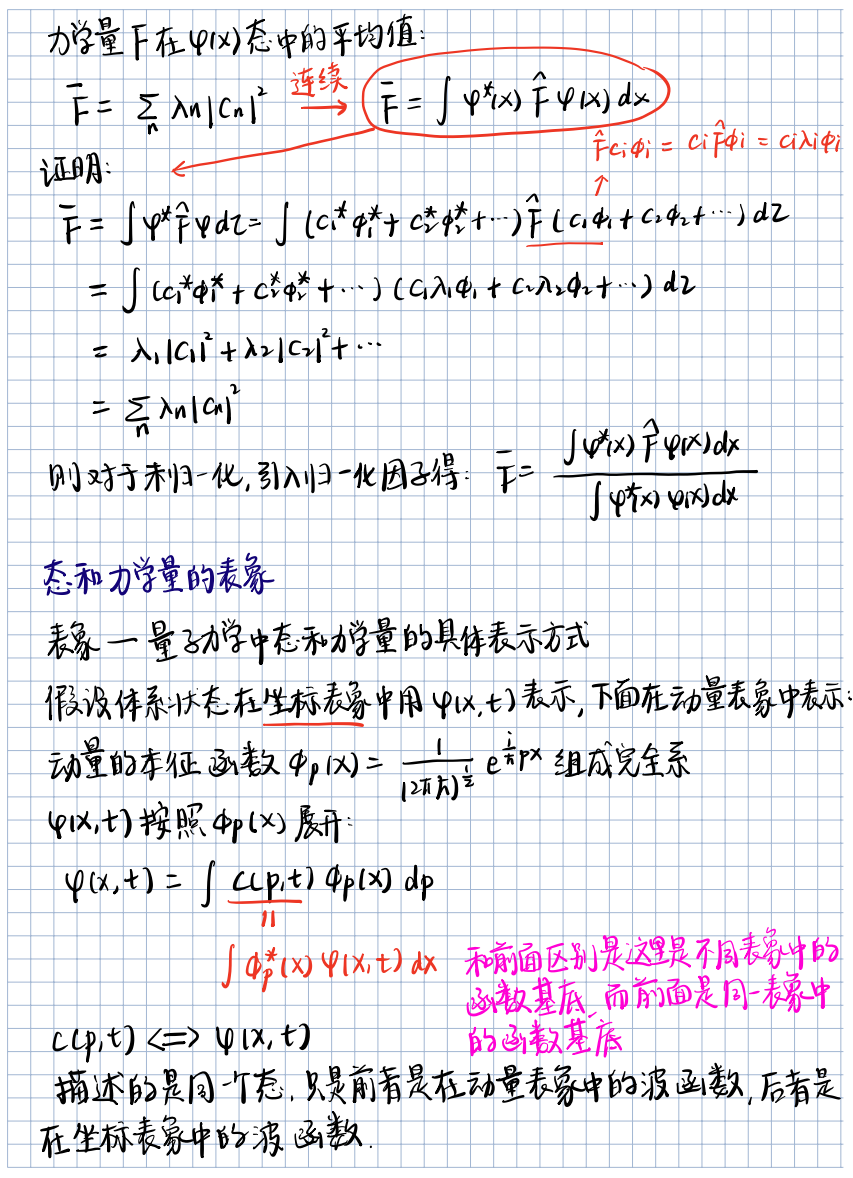 力学量F在ψ(x)态中的平均值:
F̄ = Σₙ λn|Cn|² 连续→ F̄ = ∫ψ*(x) F̂ ψ(x) dx
F̂c₁φ₁ = c₁F̂φ₁ = c₁λ₁φ₁
证明:
F̄ = ∫ψ*F̂ψdτ = ∫(c₁*φ₁* + c₂*φ₂* + ⋯) F̂ (c₁φ₁ + c₂φ₂ + ⋯) dτ
= ∫(c₁*φ₁* + c₂*φ₂* + ⋯) (c₁λ₁φ₁ + c₂λ₂φ₂ + ⋯) dτ
= λ₁|c₁|² + λ₂|c₂|² + ⋯
= Σₙ λn|cn|²
则对于未归一化,引入归一化因子得: F̄ = ∫ψ*(x) F̂ ψ(x)dx / ∫ψ*(x) ψ(x)dx
态和力学量的表象
表象 — 量子力学中态和力学量的具体表示方式
假设体系状态在坐标表象中用 ψ(x,t) 表示,下面在动量表象中表示:
动量的本征函数 φp(x) = 1/(2πħ)^½ e^(i/ħ px) 组成完全系
ψ(x,t) 按照 φp(x) 展开:
ψ(x,t) = ∫ c(p,t) φp(x) dp
॥
∫φp*(x) ψ(x,t) dx
和前面区别是这里是不同表象中的
函数基底,而前面是同一表象中
的函数基底
c(p,t) <=> ψ(x,t)
描述的是同一个态,只是前者是在动量表象中的波函数,后者是
在坐标表象中的波函数.